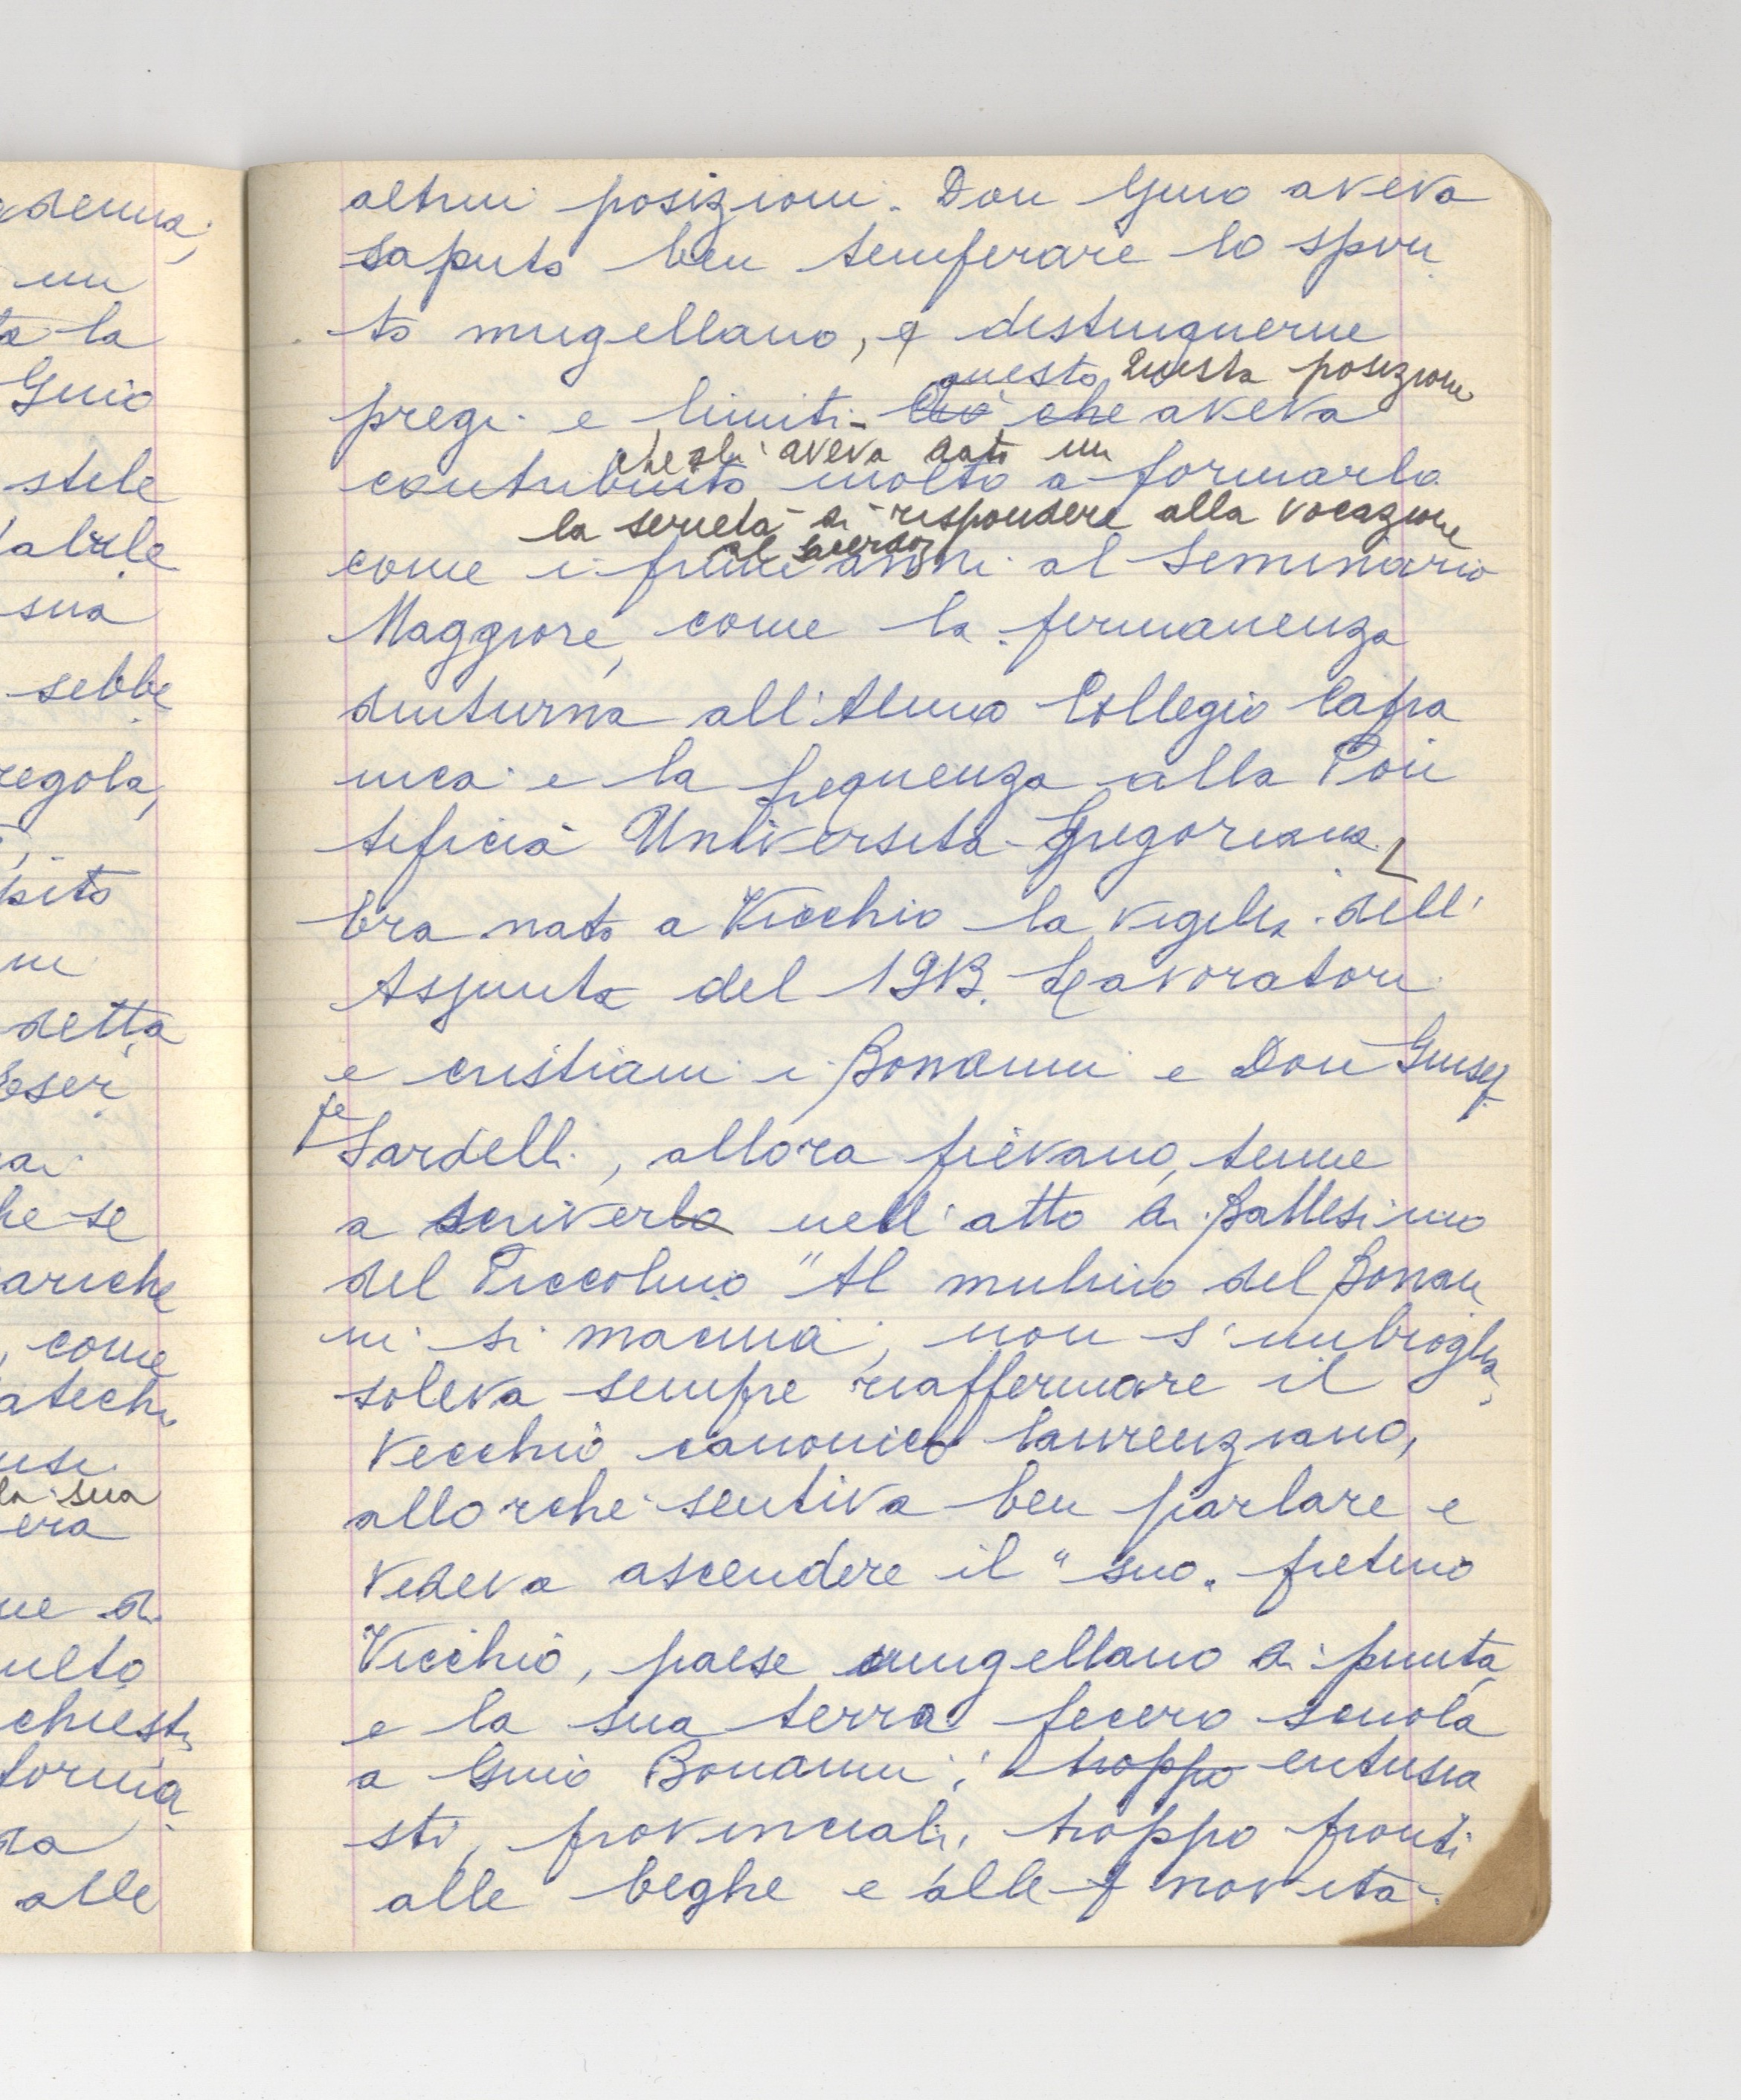 adenna,
un
ta la
Guio
stile
sua
sebbe
regola,
pito
ne
detta
Eser
ai
he se
ariche
, come
atechi
la sua
era
ne di
ulto
chiesti
ra
alle
altrui posizioni. Don Gino aveva
saputo ben temperare lo spiri
to mugellano, e distinguerne
questo Questa posizione
pregi e limiti. Ciò che aveva
che gli aveva dato un
contribuito molto a formarlo
la serietà di rispondere alla vocazione
al sacerdoz
come i primi anni al Seminario
Maggiore, come la permanenza
diuturna all'Almo Collegio Capra
nica e la frequenza alla Pon
tificia Università Gregoriana.
Era nato a Vicchio la vigilia dell'
Assunta del 1913. Lavoratori
e cristiani i Bonanni e Don Giusep
pe
Sardelli, allora pievano, tenne
a scriverlo nell'atto di Battesimo
del Piccolino "Al mulino del Bonan
ni si macina, non s'imbroglia,
soleva sempre riaffermare il
vecchio canonico laurenziano,
allorché sentiva ben parlare e
vedeva ascendere il "suo" pretino
Vicchio, paese mugellano di punta,
e la sua terra fecero scuola
a Gino Bonanni; troppo entusia
sti, provinciali, troppo pronti
alle beghe e alle novità.